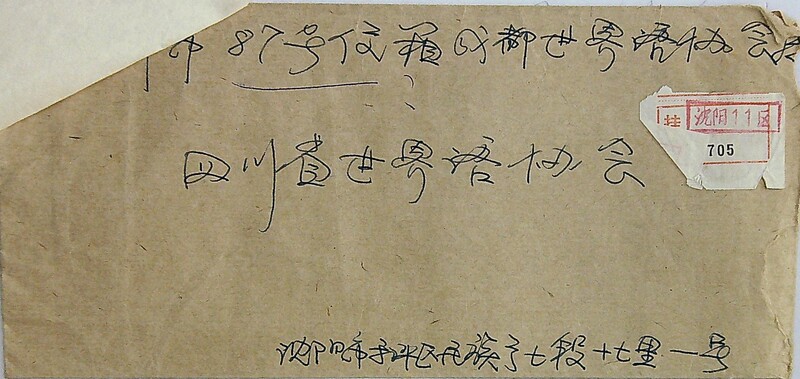 市87号信箱成都世界语协会
四川省世界语协会
挂 沈阳11区
705
沈阳市和平区民族街七段十七里一号